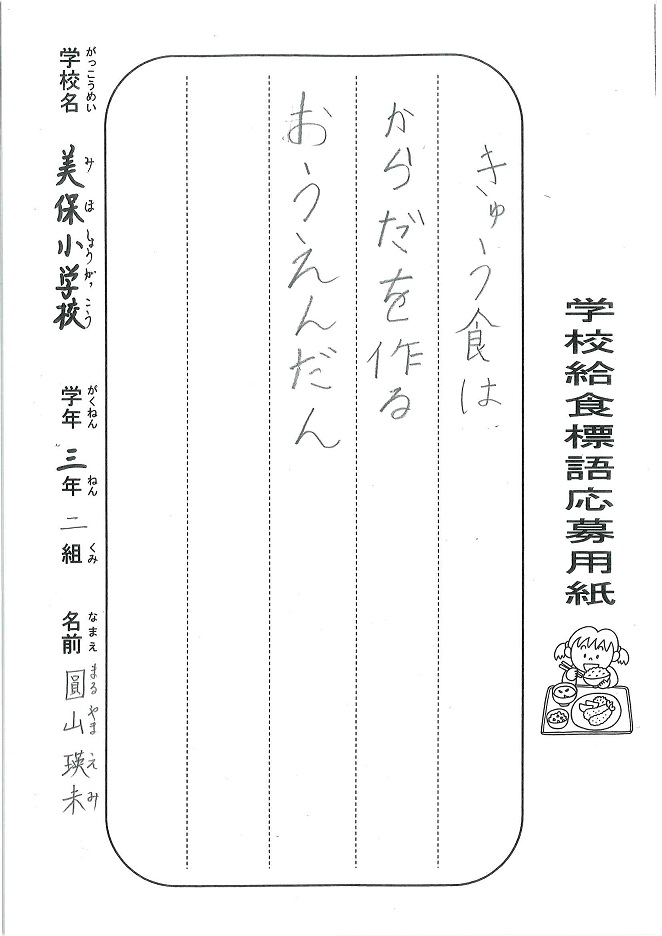 学校給食標語応募用紙
きゅう食は
からだを作る
おうえんだん
学校名 美保小学校 学年 三年 二組 名前 圓山瑛未
がっこうめい みほしょうがっこう がくねん ねん くみ なまえ まるやまえみ